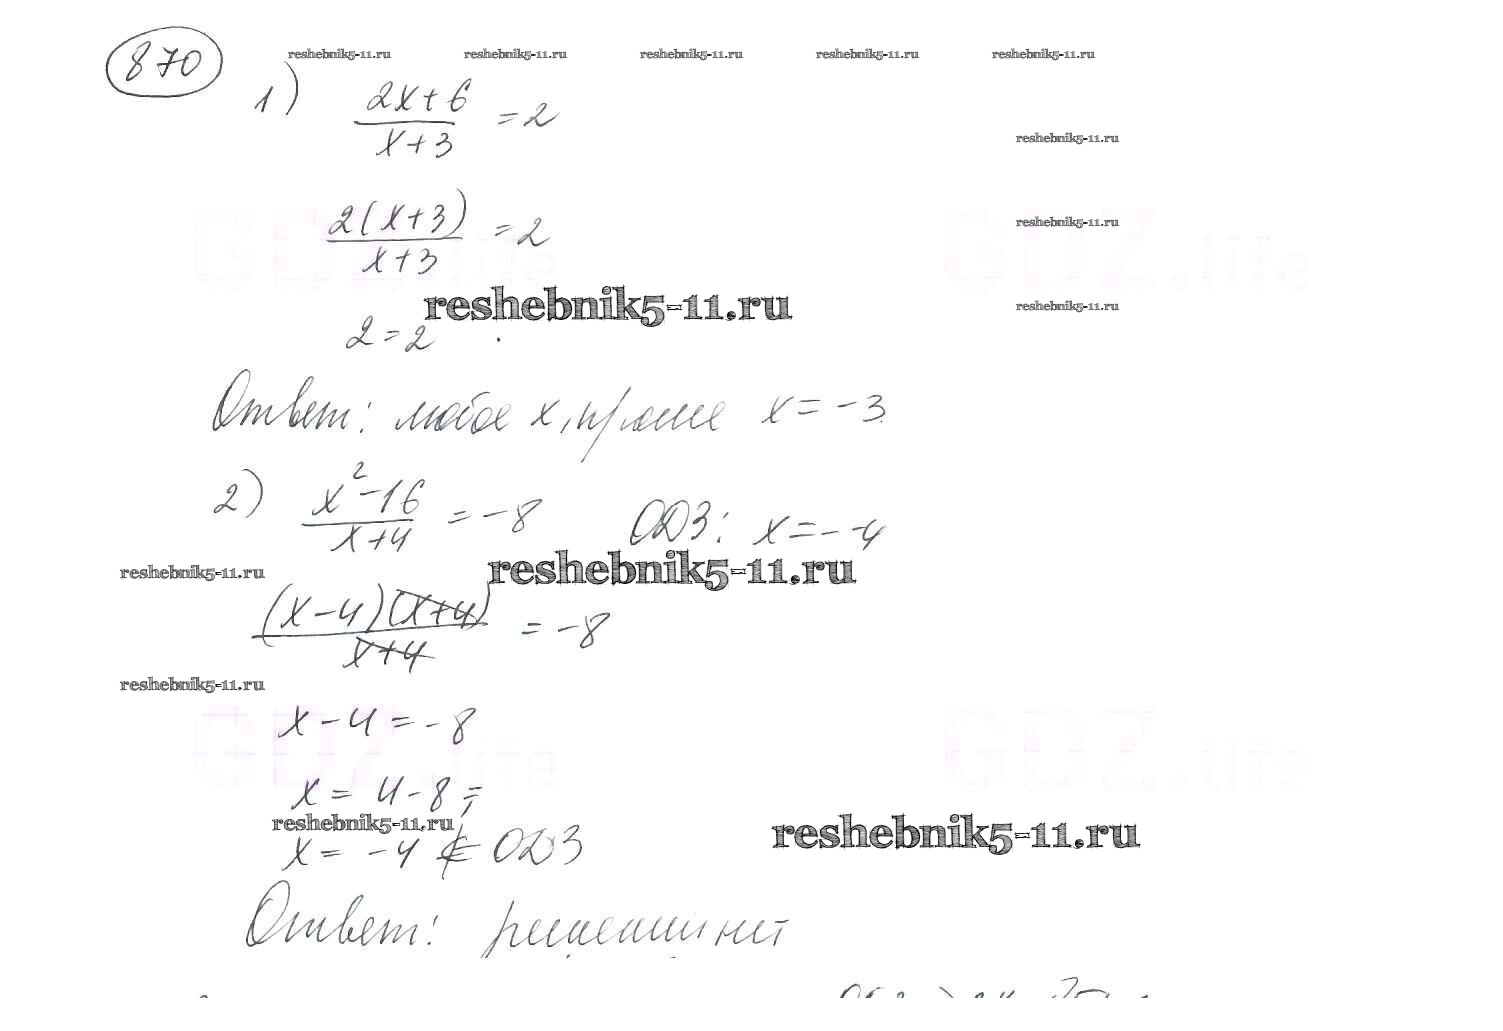 870
reshebnik5-11.ru reshebnik5-11.ru reshebnik5-11.ru reshebnik5-11.ru reshebnik5-11.ru
1) (2x+6)/(x+3) = 2
reshebnik5-11.ru
(2(x+3))/(x+3) = 2
reshebnik5-11.ru
GDZ.life GDZ.life
reshebnik5-11.ru
reshebnik5-11.ru
2 = 2
Ответ: любое x, кроме x = -3
2) (x²-16)/(x+4) = -8 ОДЗ: x = -4
reshebnik5-11.ru reshebnik5-11.ru
((x-4)(x+4))/(x+4) = -8
reshebnik5-11.ru
x-4 = -8
GDZ.life GDZ.life
x = 4-8;
reshebnik5-11.ru reshebnik5-11.ru
x = -4 ∉ ОДЗ
Ответ: решений нет